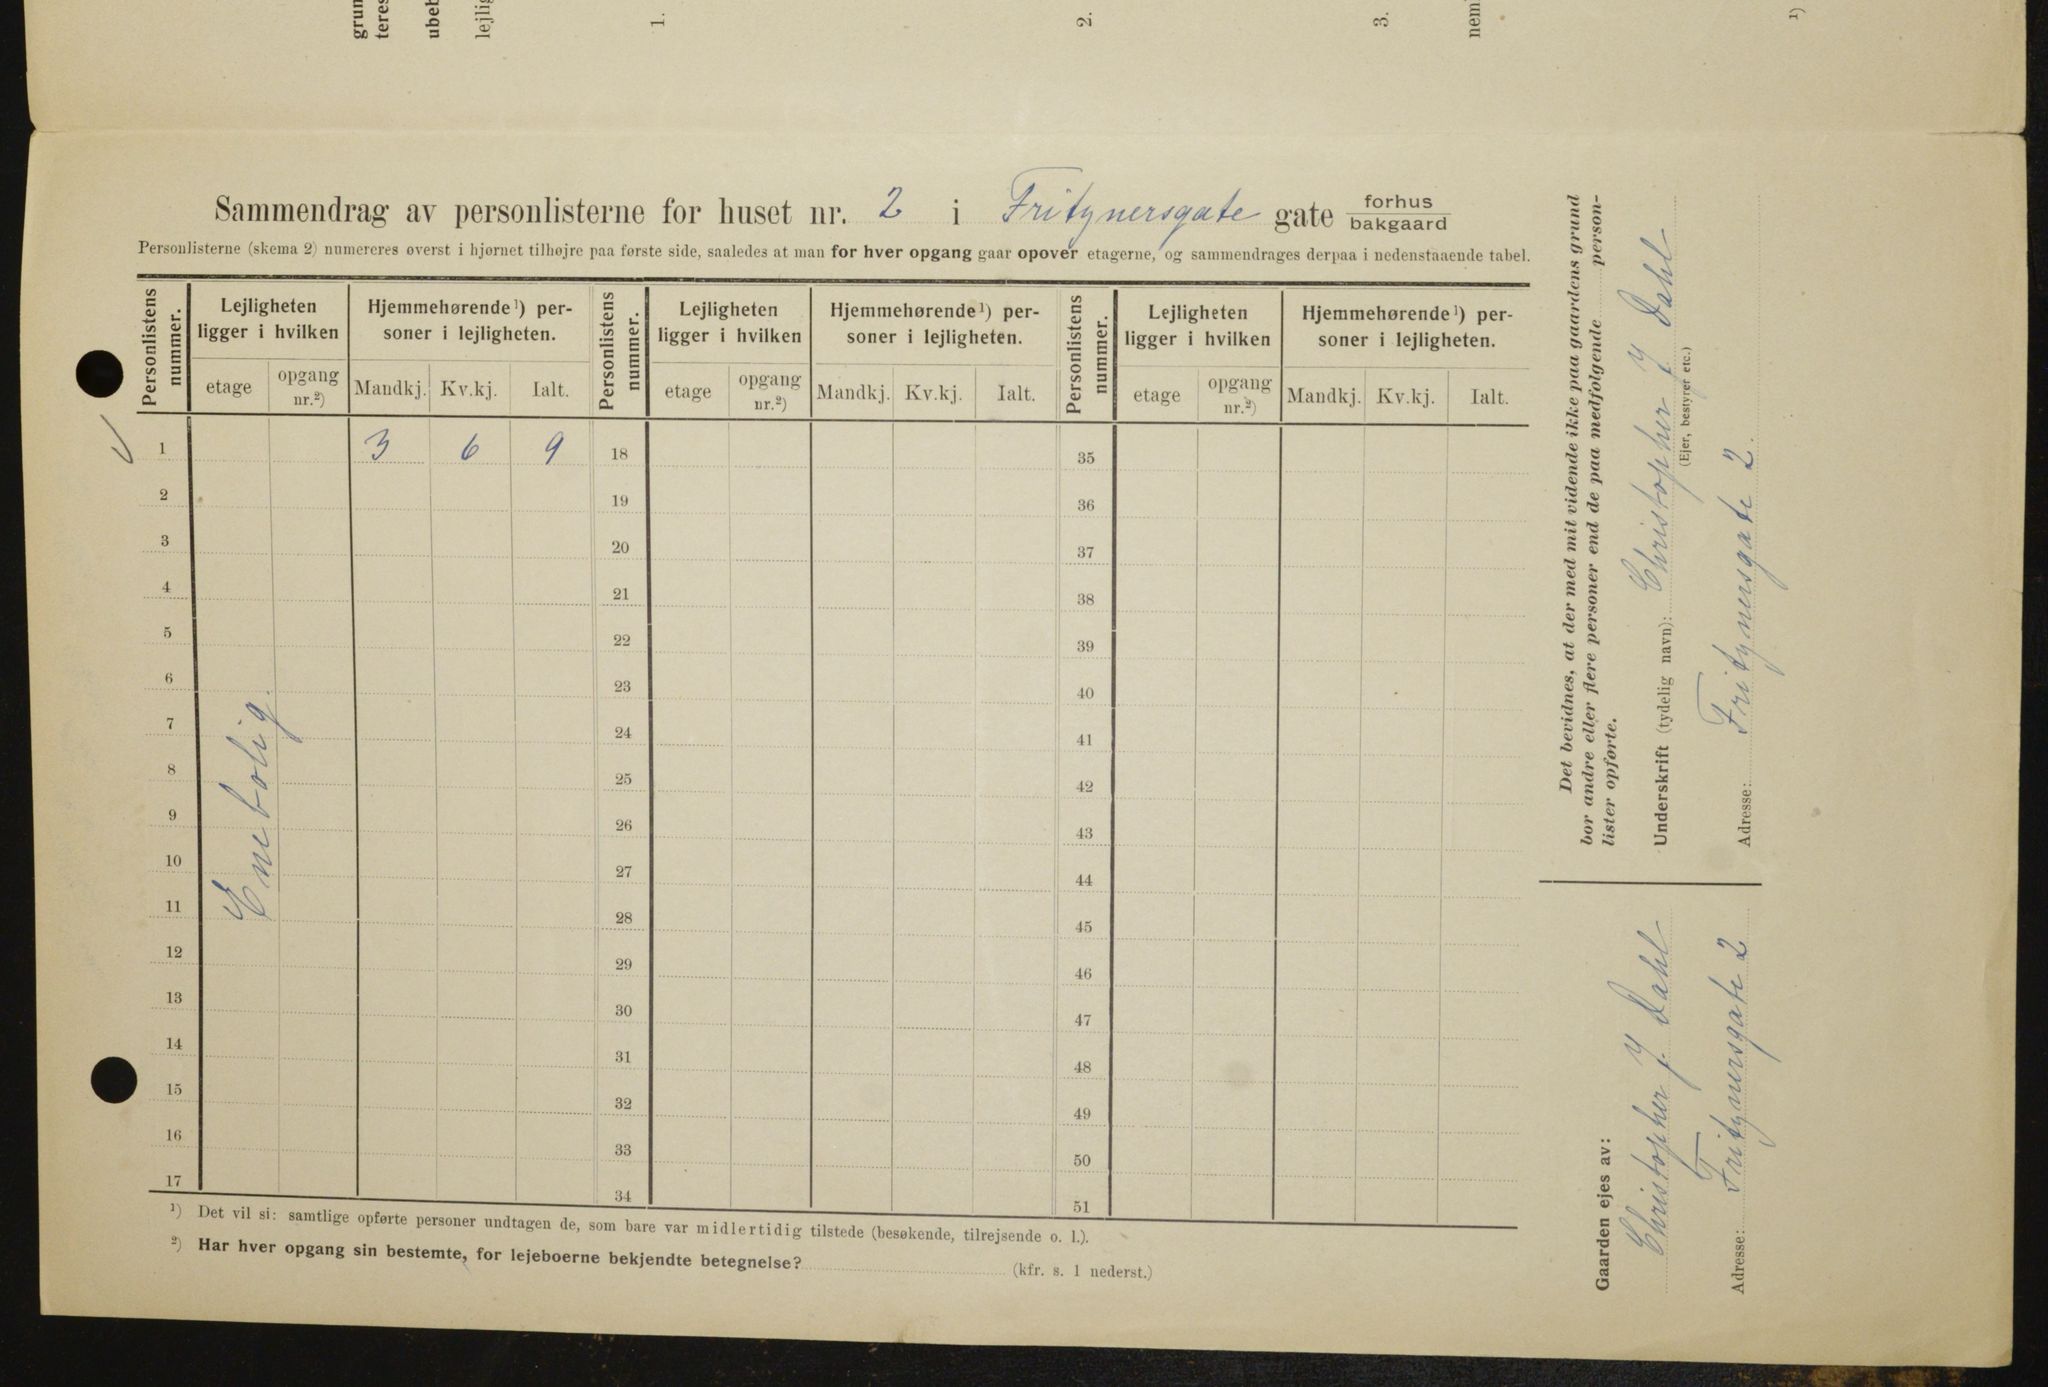 grun
teres
ubeb
lejlig
1.
2.
3.
nem
¹)
Sammendrag av personlisterne for huset nr. 2 i Fritznersgate gate forhus
bakgaard
Personlisterne (skema 2) numereres øverst i hjørnet tilhøjre paa første side, saaledes at man for hver opgang gaar opover etagerne, og sammendrages derpaa i nedenstaaende tabel.
Personlistens nummer. Lejligheten ligger i hvilken Hjemmehørende¹) personer i lejligheten. Personlistens nummer. Lejligheten ligger i hvilken Hjemmehørende¹) personer i lejligheten. Personlistens nummer. Lejligheten ligger i hvilken Hjemmehørende¹) personer i lejligheten.
etage opgang nr.²) Mandkj. Kv.kj. Ialt. etage opgang nr.²) Mandkj. Kv.kj. Ialt. etage opgang nr.²) Mandkj. Kv.kj. Ialt.
1 3 6 9 18 35
2 19 36
3 20 37
4 21 38
5 22 39
6 23 40
7 24 41
8 25 42
9 26 43
10 27 44
11 28 45
12 29 46
13 30 47
14 31 48
15 32 49
16 33 50
17 34 51
Enebolig.
¹) Det vil si: samtlige opførte personer undtagen de, som bare var midlertidig tilstede (besøkende, tilrejsende o. l.).
²) Har hver opgang sin bestemte, for lejeboerne bekjendte betegnelse? (kfr. s. 1 nederst.)
Det bevidnes, at der med mit vidende ikke paa gaardens grund
bor andre eller flere personer end de paa medfølgende person-
lister opførte.
Underskrift (tydelig navn): Christopher J Dahl
(Ejer, bestyrer etc.)
Adresse: Fritznersgate 2.
Gaarden ejes av:
Christopher J Dahl
Adresse: Fritznersgate 2